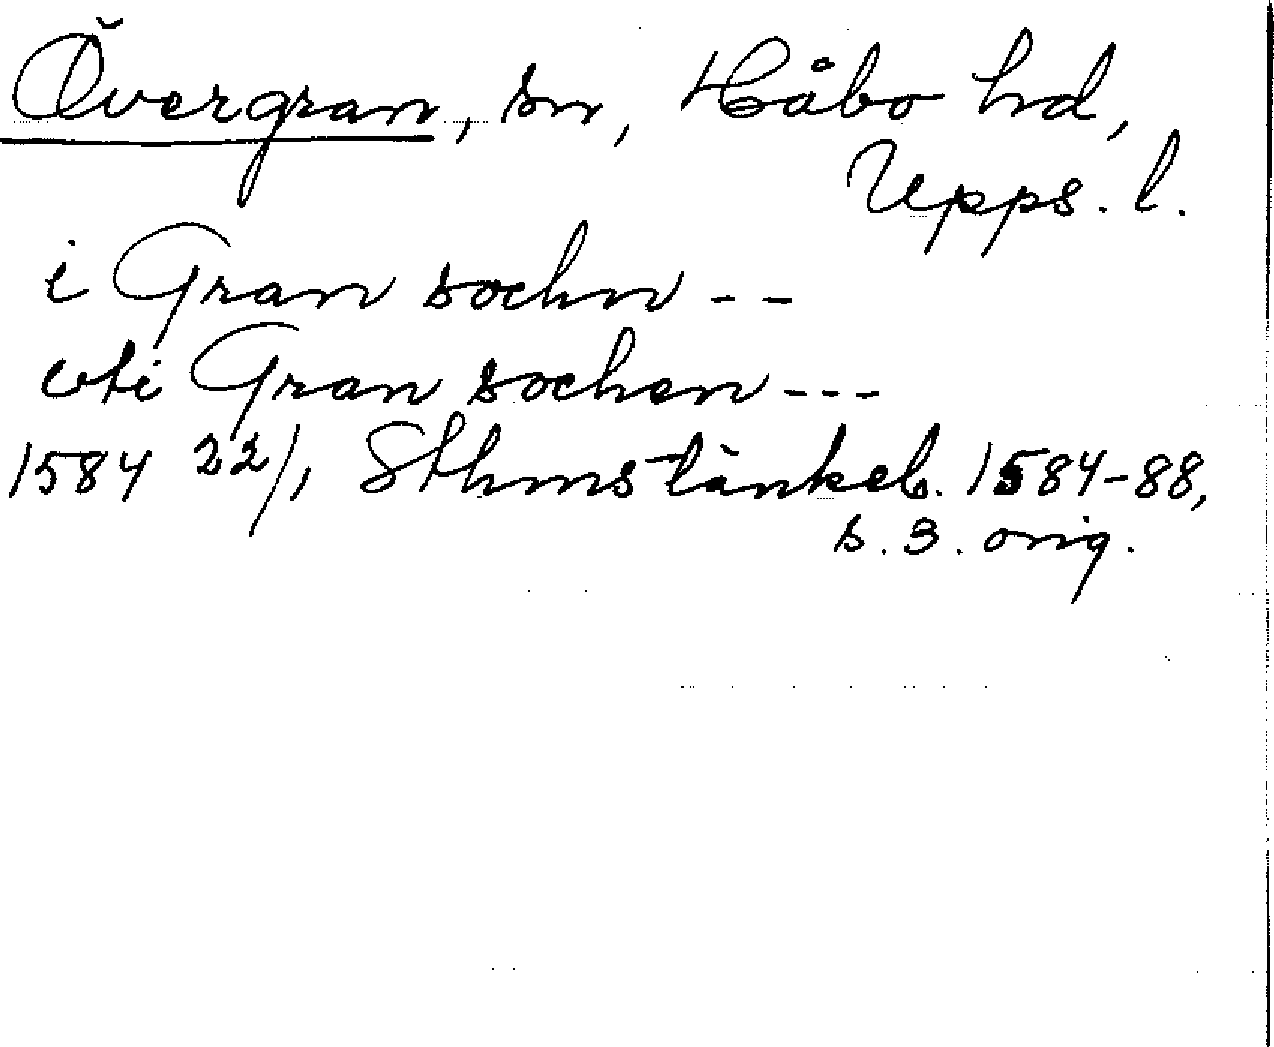 Övergran, sn, Håbo hd,
Upps. l.
i Gran sochn - -
uti Gran sochen - - -
1584 22/1 Sthms tänkeb. 1584-88,
s. 3. orig.